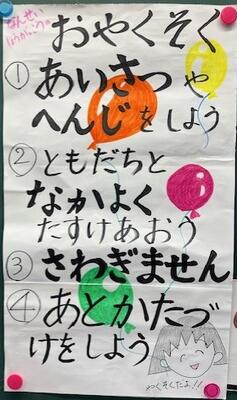 なんせい
しょうがっこうの
おやくそく
① あいさつや
へんじをしよう
② ともだちと
なかよく
たすけあおう
③ さわぎません
④ あとかたづ
けをしよう
やくそくだよ!!